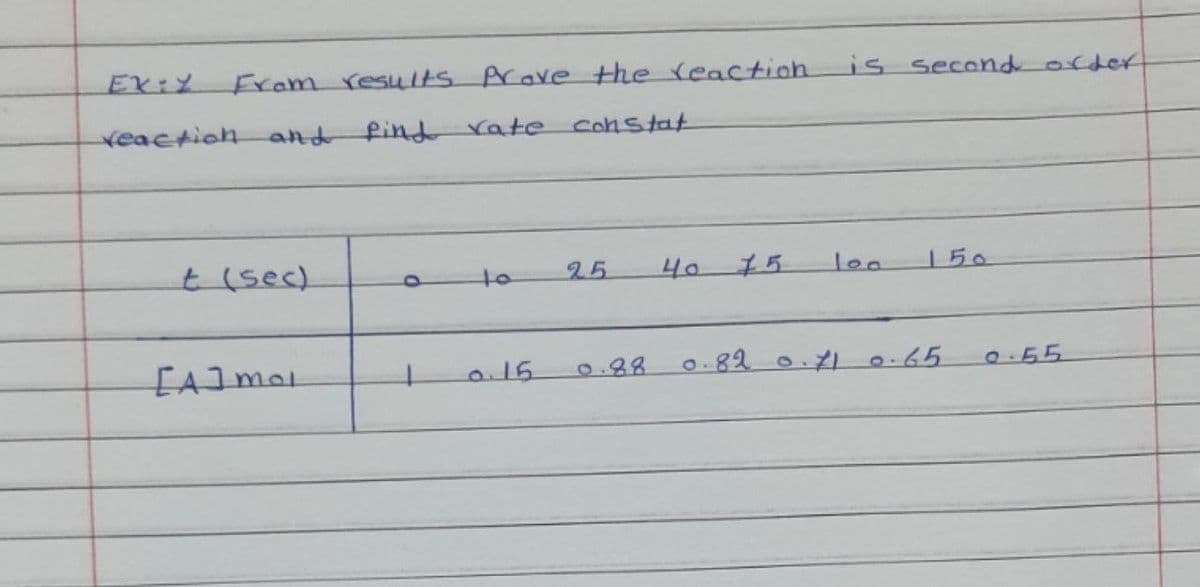 Ex:7 From results Prove the reaction is second order
reaction and find rate constat
t (sec) 0 10 25 40 75 100 150
[A] mol 1 0.15 0.88 0.82 0.71 0.65 0.55